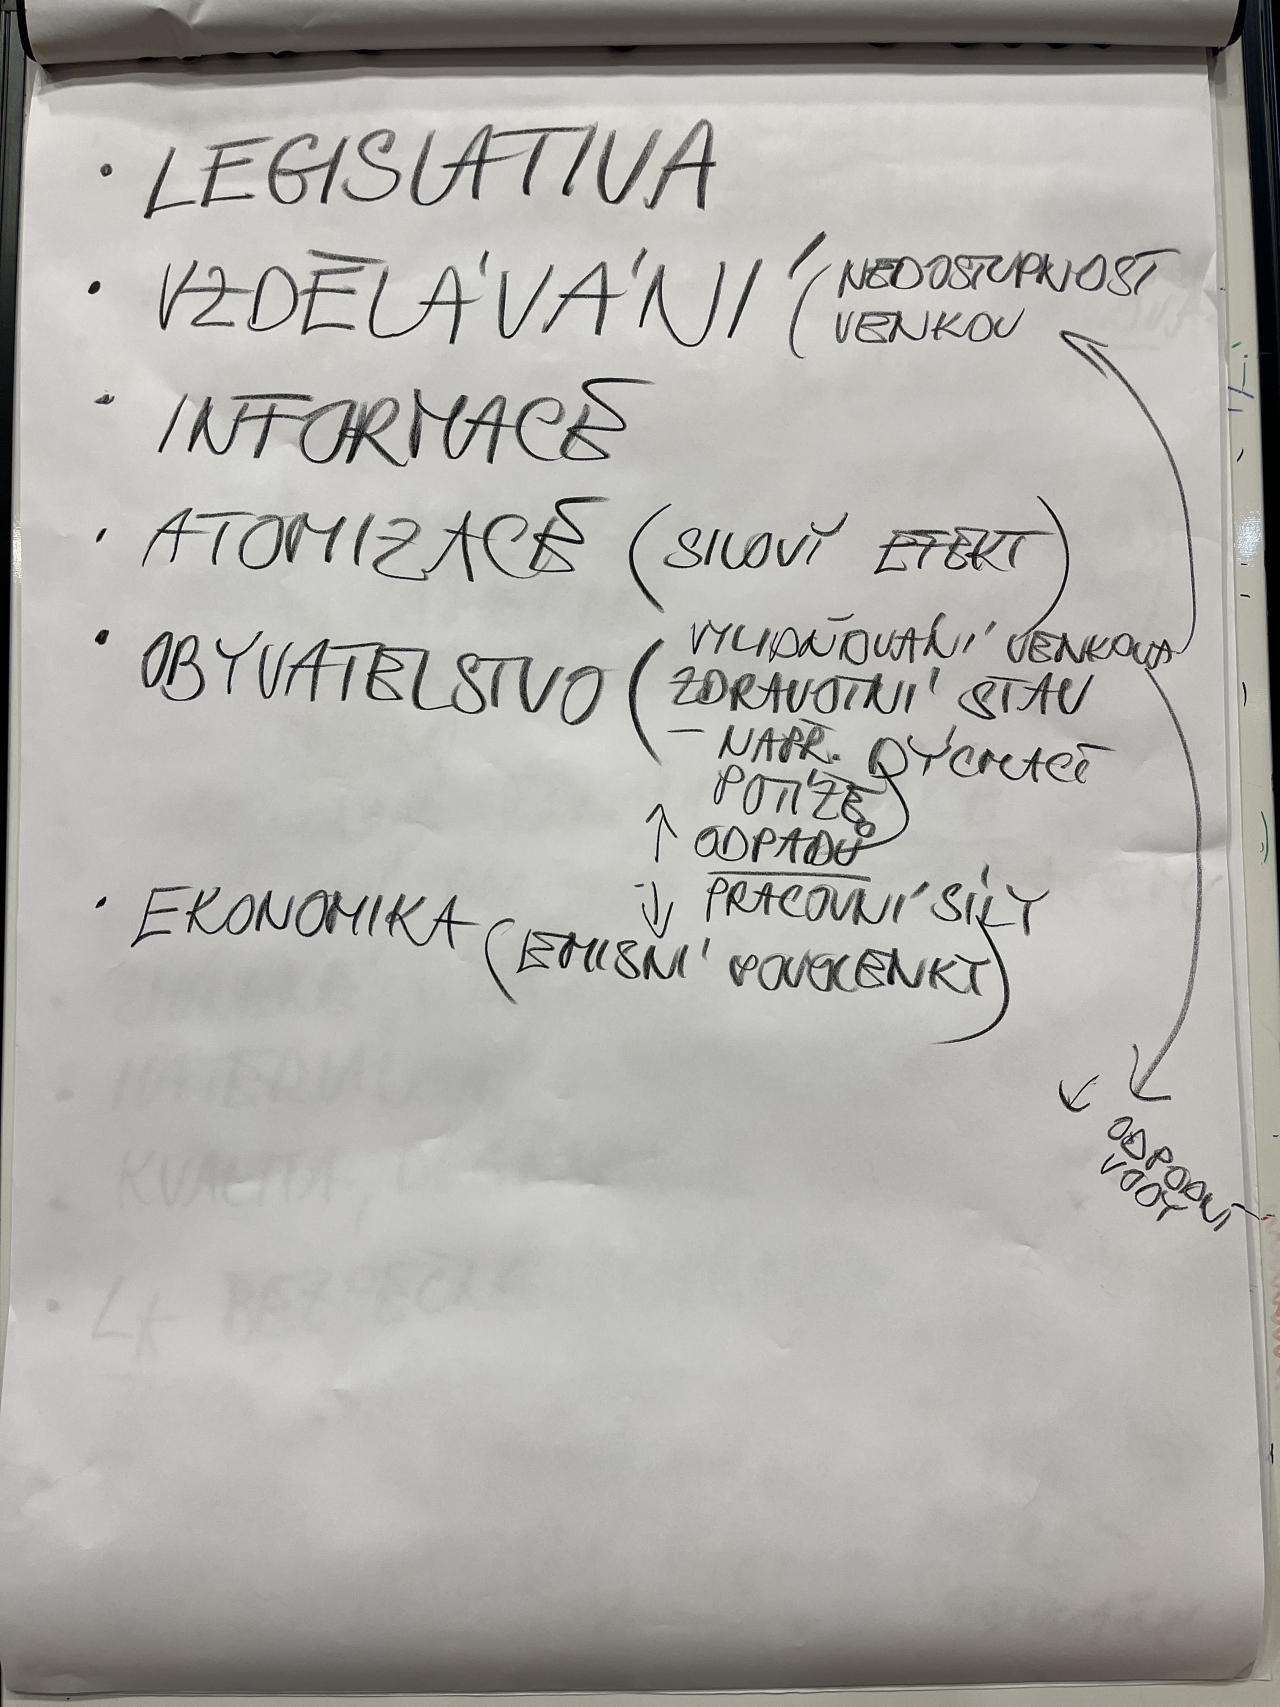 • LEGISLATIVA
• VZDĚLÁVÁNÍ (NEDOSTUPNOST
VENKOV
• INFORMACE
• ATOMIZACE (SILOVÝ EFEKT)
• OBYVATELSTVO (VYLIDŇOVÁNÍ VENKOVA
ZDRAVOTNÍ STAV
– NAPŘ. DÝCHACÍ
POTÍŽE
↑ ODPADŮ)
↓ PRACOVNÍ SÍLY
• EKONOMIKA (EMISNÍ POVOLENKY)
↓ ODPADNÍ
VODY